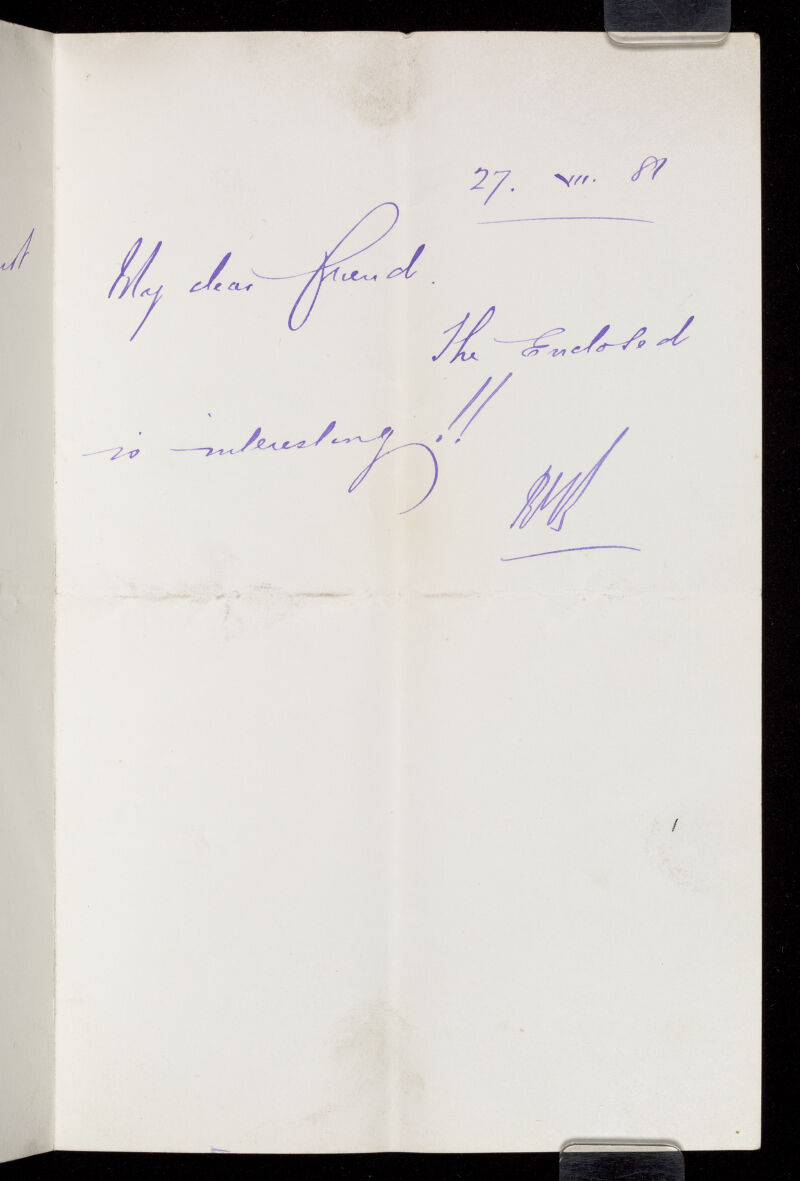 27. VIII. 81
My dear friend.
The Enclosed
is interesting !!